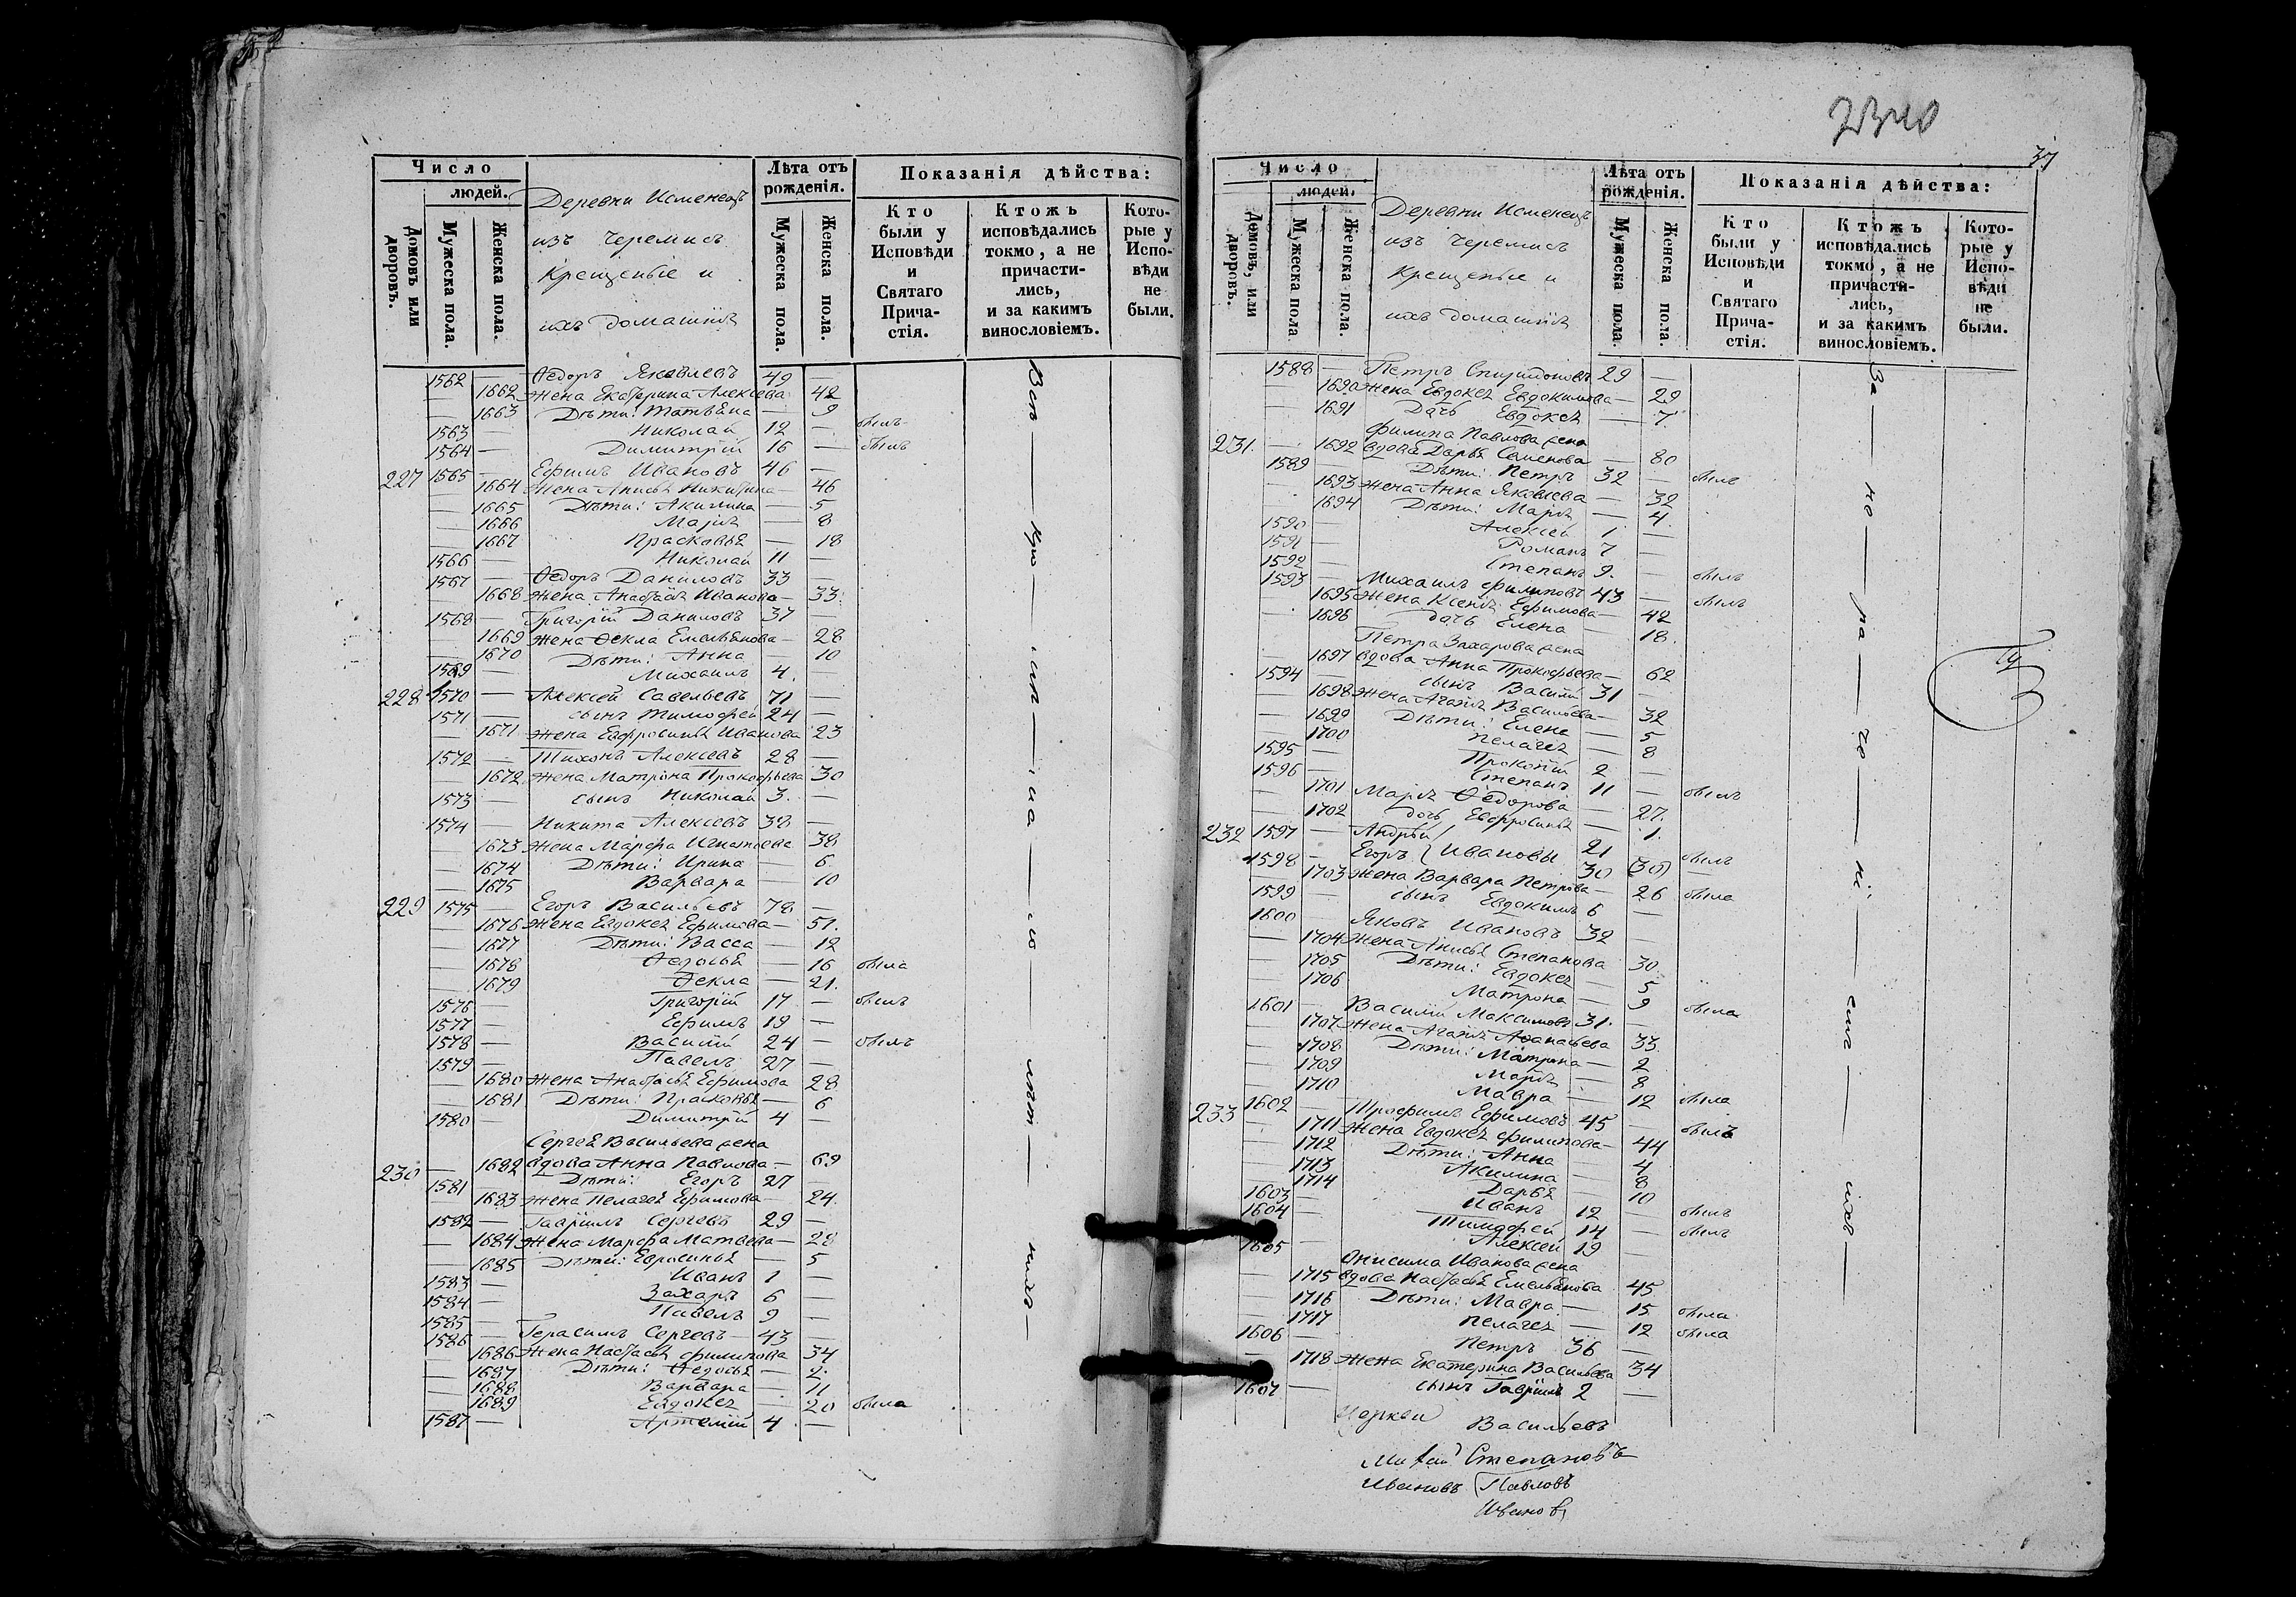 Число
людей.
Домовъ или дворовъ.
Мужеска пола.
Женска пола.
Деревни Исменецъ
изъ Черемисъ
Крещеные и
ихъ домашнія
Лѣта отъ рожденія.
Мужеска пола.
Женска пола.
Показанія дѣйства:
Кто были у Исповѣди и Святаго Прича-стія.
Ктожъ исповѣдались токмо, а не причасти-лись, и за какимъ винословіемъ.
Кото-рые у Испо-вѣди не были.
1562 — Ѳедоръ Яковлевъ 49 —
— 1662 жена Екатерина Алексѣева 42
— 1663 Дѣти: Татьяна — 9
1563 — Николай 12 — былъ
1564 — Димитрій 16 — былъ
227 1565 — Ефимъ Ивановъ 46 —
1664 жена Анисья Никитина — 46
— 1665 Дѣти: Акилина — 5
— 1666 Марія — 8
— 1667 Прасковья — 18
1566 — Николай 11 —
1567 — Ѳедоръ Даниловъ 33
1668 жена Анастасія Иванова — 33
1568 — Григорій Даниловъ 37 —
— 1669 жена Ѳекла Емельянова — 28
— 1670 Дѣти: Анна — 10
1569 — Михаилъ 4. —
228 1570 — Алексѣй Савельевъ 71 —
1571 — сынъ Тимофей 24 —
— 1671 жена Евфросинья Иванова 23
1572 — Тихонъ Алексѣевъ 28 —
— 1672 жена Матрона Прокофьева 30
1573 — сынъ Николай 3. —
1574 — Никита Алексѣевъ 38 —
— 1673 жена Марфа Игнатьева 38
— 1674 Дѣти: Ирина — 6
— 1675 Варвара — 10
229 1575 — Егоръ Васильевъ 78 —
— 1676 жена Евдокея Ефимова — 51.
— 1677 Дѣти: Васса — 12
— 1678 Ѳедосья — 16 была
— 1679 Ѳекла — 21.
1576 — Григорій 17 — былъ
1577 — Ефимъ 19 —
1578 — Василій 24 — былъ
1579 — Павелъ 27 —
— 1680 жена Анастасья Ефимова 28
— 1681 Дѣти: Прасковья — 6
1580 — Димитрій 4 —
Сергея Васильева жена
230 — 1682 вдова Анна Павлова — 69
1581 Дѣти: Егоръ 27
1683 жена Пелагея Ефимова — 24.
1582 — Гавріилъ Сергеевъ 29 —
— 1684 жена Марфа Матвеева — 28
— 1685 Дѣти: Евросинья — 5
1583 — Иванъ 1 —
1584 — Захаръ 6 —
1585 — Павелъ 9 —
1586 — Герасимъ Сергеевъ — 43 —
— 1686 жена Настасья Филипова 34
— 1687 Дѣти: Ѳедосья — 2.
— 1688 Варвара — 11
— 1689 Евдокея — 20 была
1587 — Артемій 4 —
37
Число
людей.
Домовъ, или дворовъ.
Мужеска пола
Женска пола.
Деревни Исменецъ
изъ Черемисъ
Крещеные и
ихъ домашнія
Лѣта отъ рожденія.
Мужеска пола.
Женска пола.
Показанія дѣйства:
Кто были у Исповѣди и Святаго Прича-стія.
Ктожъ исповѣдались токмо, а не причасти-лись, и за какимъ винословіемъ.
Кото-рые у Испо-вѣди не были.
1588 — Петръ Спиридоновъ 29 —
1690 жена Евдокея Евдокимова — 29
— 1691 Дочь Евдокея — 7.
Филипа Павлова жена
231. — 1692 вдова Дарья Семенова — 80
1589 — Дѣти: Петръ 32 — былъ
1693 жена Анна Яковлева — 32
1694 Дѣти: Марія — 4.
1590 — Алексѣй 1 —
1591 — Романъ 7 —
1592 — Степанъ 9. — былъ
1593 Михаилъ Филиповъ 43 — былъ
1695 жена Ксенія Ефимова — 42
— 1696 дочь Елена — 18.
Петра Захарова жена
— 1697 вдова Анна Прокофьева — 62
1594 — сынъ Василій 31 —
— 1698 жена Агафія Васильева — 32
— 1699 Дѣти: Елена — 5
— 1700 Пелагея — 8
1595 — Прокопій 2 —
1596 — Степанъ 11 — былъ
— 1701 Марія Ѳедорова — 27.
— 1702 дочь Евфросинья — 1.
232 1597 — Андрей Ивановы 21 былъ
1598 — Егоръ 30 (30) —
1703 жена Варвара Петрова — 26 была
1599 — сынъ Евдокимъ 6 —
1600 Яковъ Ивановъ 32 —
— 1704 жена Анисья Степанова 30
— 1705 Дѣти: Евдокея — 5
— 1706 Матрона — 9 была
1601 — Василій Максимовъ 31. —
— 1707 жена Агафія Афанасьева 33.
— 1708 Дѣти: Матрона — 2
— 1709 Марія — 8
— 1710 Мавра — 12 была
233 1602 — Трофимъ Ефимовъ 45 — былъ
— 1711 жена Евдокея Филипова — 44
— 1712 Дѣти: Анна — 4
— 1713 Акилина — 8
— 1714 Дарья — 10
1603 — Иванъ 12 — былъ
1604 — Тимофей 14 — былъ
1605 — Алексѣй 19 —
Онисима Иванова жена
— 1715 вдова Настасья Емельянова 45
— 1716 Дѣти: Мавра — 15 была
— 1717 Пелагея — 12 была
1606 — Петръ 36 —
— 1718 жена Екатерина Васильева 34
1607 — сынъ Гавріилъ 2 —
Церкви Васильевъ
Степановъ
Ивановъ Павловъ
Ивановъ